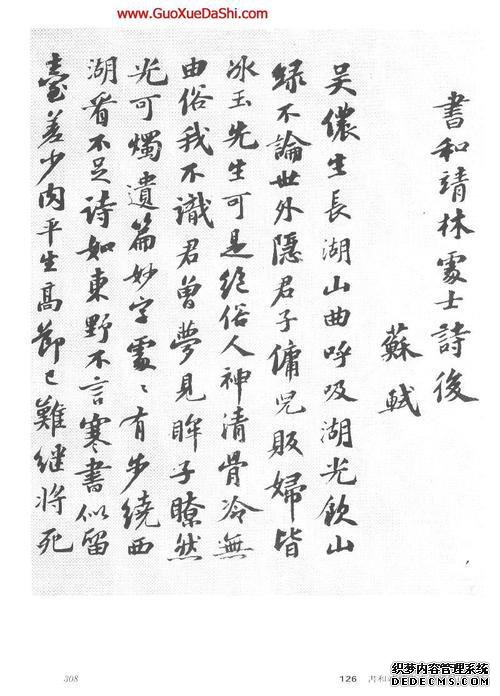 www.GuoXueDaShi.com
書和靖林處士詩後
蘇軾
吴儂生長湖山曲呼吸湖光飲山
緑不論世外隱君子傭児販婦皆
冰玉先生可是絶俗人神清骨冷無
由俗我不識君曾夢見眸子瞭然
光可燭遺篇妙字處〻有步繞西
湖看不足詩如東野不言寒書似留
臺差少肉平生高節已難継將死
308
126 書和
织梦内容管理系统
DEDECMS.COM